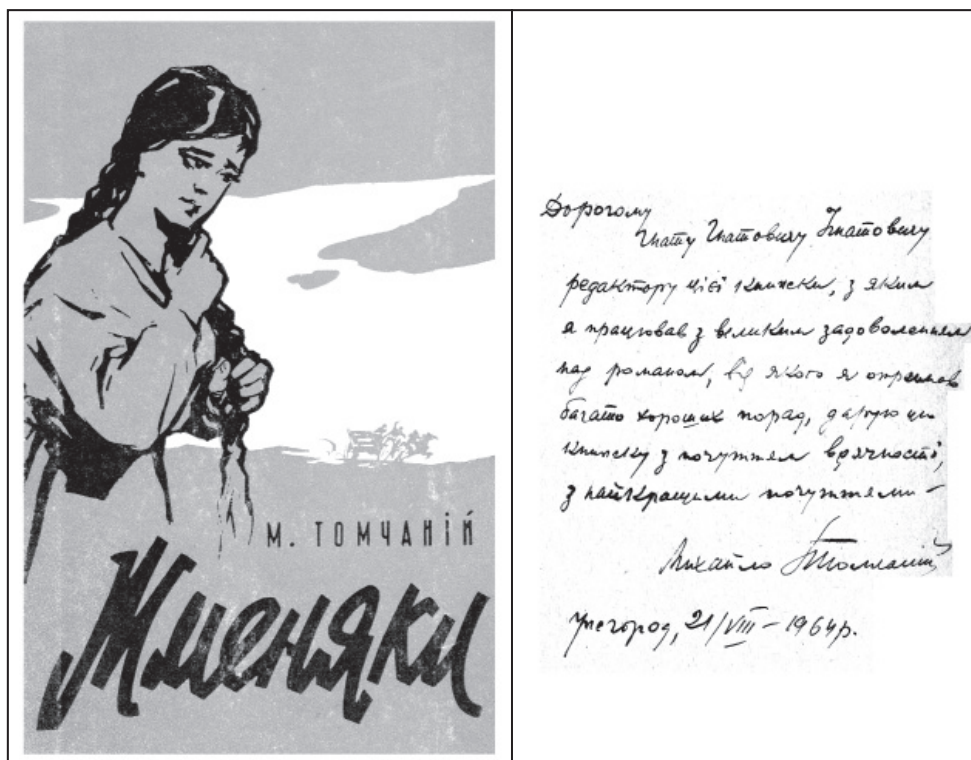 М. ТОМЧАНІЙ
Жменяки
Дорогому
Гнату Гнатовичу Ігнатовичу
редактору цієї книжки, з яким
я працював з великим задоволенням
над романом, від якого я отримав
багато хороших порад, дарую цю
книжку з почуттям вдячності,
з найкращими почуттями –
Михайло Томчаній
Ужгород, 21/VIII – 1964 р.